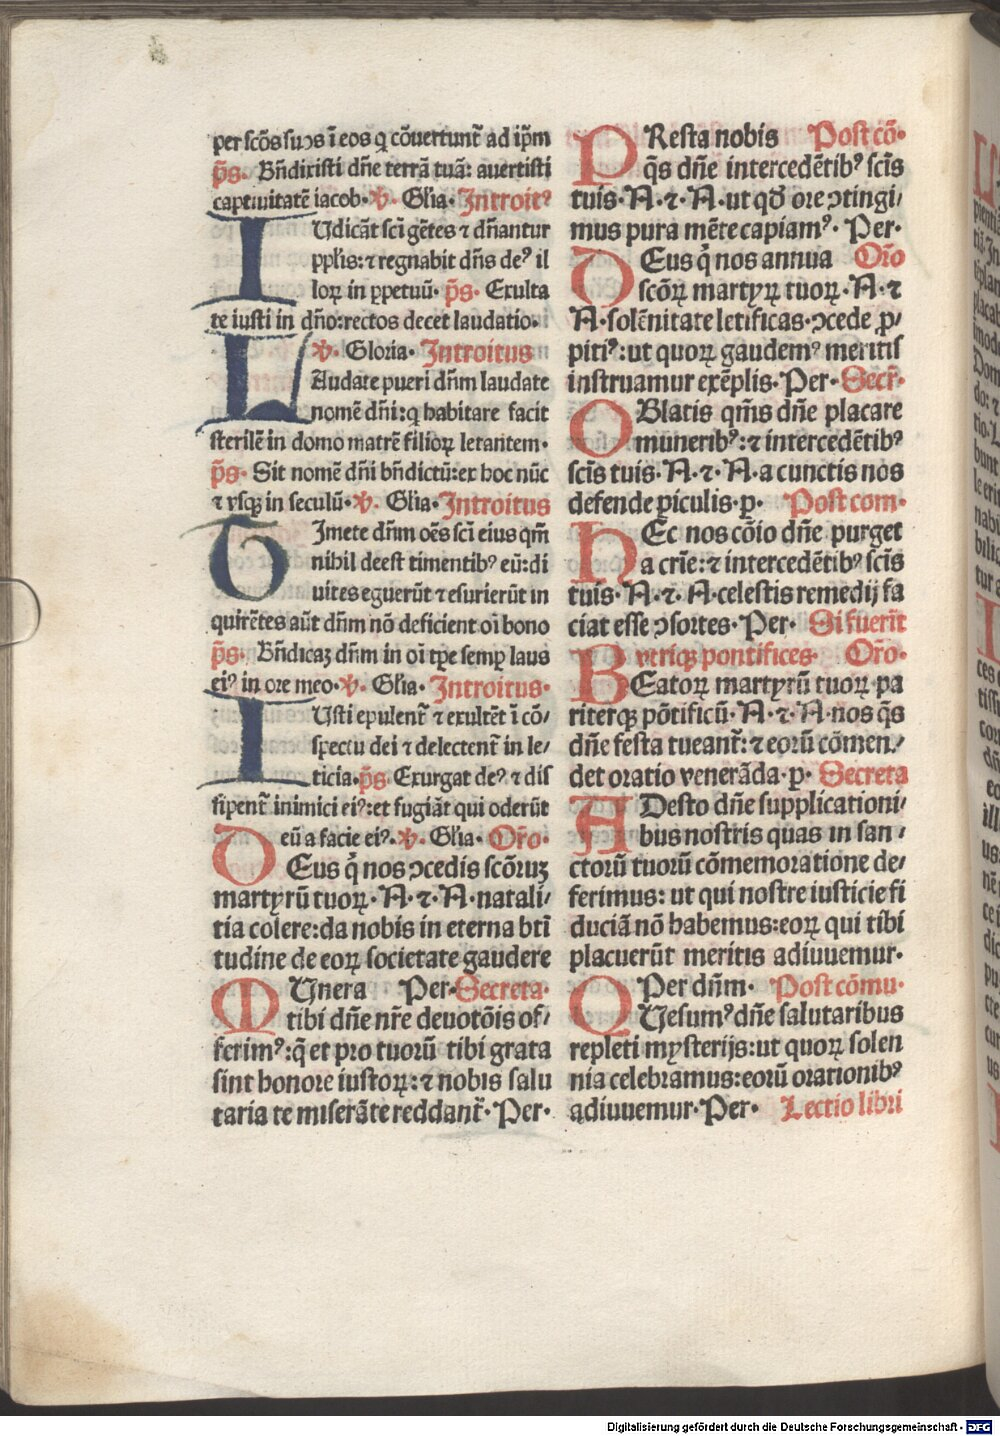 per scōs suos ī eos q cōuertunt̄ ad ip̄m
p̄s. Bn̄dixisti dn̄e terrā tuā: auertisti
captiuitatē iacob. ℣. Gl'ia. Introitꝰ
IUdicāt sc̄i gētes ⁊ dn̄antur
ppl'is: ⁊ regnabit dn̄s deꝰ il
loꝝ in ꝑpetuū. p̄s. Exulta
te iusti in dn̄o: rectos decet laudatio.
℣. Gloria. Introitus
LAudate pueri dn̄m laudate
nomē dn̄i: q habitare facit
sterilē in domo matrē filioꝝ letantem.
p̄s. Sit nomē dn̄i bn̄dictū: ex hoc nūc
⁊ vsqꝫ in seculū. ℣. Gl'ia. Introitus
TImete dn̄m oēs sc̄i eius qm̄
nihil deest timentibꝰ eū: di
uites eguerūt ⁊ esurierūt in
quirētes aūt dn̄m nō deficient oī bono
p̄s. Bn̄dicaꝫ dn̄m in oī tp̄e semꝑ laus
eiꝰ in ore meo. ℣. Gl'ia. Introitus.
IUsti epulent̄ ⁊ exultēt ī cō/
spectu dei ⁊ delectent̄ in le/
ticia. p̄s. Exurgat deꝰ ⁊ dis
sipent̄ inimici eiꝰ: et fugiāt qui oderūt
eū a facie eiꝰ. ℣. Gl'ia. Or̄o.
DEus q̄ nos ɔcedis scōruꝫ
martyrū tuoꝝ. N. ⁊. N. natali/
tia colere: da nobis in eterna bt̄i
tudine de eoꝝ societate gaudere
MUnera Per. Secreta.
tibi dn̄e nr̄e deuotōis of/
ferimꝰ: q̄ et pro tuorū tibi grata
sint honore iustoꝝ: ⁊ nobis salu
taria te miserāte reddant̄. Per.
PResta nobis Post cō.
q̄s dn̄e intercedētibꝰ scīs
tuis. N. ⁊. N. ut qd̄ ore ɔtingi/
mus pura mēte capiamꝰ. Per.
DEus q̄ nos annua Or̄o
scōꝝ martyꝝ tuoꝝ. N. ⁊
N. solēnitate letificas. ɔcede ꝓ/
pitiꝰ: ut quoꝝ gaudemꝰ meritis
instruamur exēplis. Per. Secr̄.
OBlatis qm̄s dn̄e placare
muneribꝰ: ⁊ intercedētibꝰ
scīs tuis. N. ⁊. N. a cunctis nos
defende ꝑiculis. ꝑ. Post com.
HEc nos cōio dn̄e purget
a crīe: ⁊ intercedētibꝰ scīs
tuis. N. ⁊. N. celestis remedij fa
ciat esse ɔsortes. Per. Si fuerīt
vtriqꝫ pontifices. Or̄o.
BEatoꝝ martyrū tuoꝝ pa
riterqꝫ pōtificū. N. ⁊. N. nos q̄s
dn̄e festa tueant̄: ⁊ eorū cōmen/
det oratio venerāda. ꝑ. Secreta
ADesto dn̄e supplicationi/
bus nostris quas in san/
ctorū tuorū cōmemoratione de/
ferimus: ut qui nostre iusticie fi
duciā nō habemus: eoꝝ qui tibi
placuerūt meritis adiuuemur.
Per dn̄m. Post cōmu.
QUesumꝰ dn̄e salutaribus
repleti mysterijs: ut quoꝝ solen
nia celebramus: eorū orationibꝰ
adiuuemur. Per. Lectio libri
Digitalisierung gefördert durch die Deutsche Forschungsgemeinschaft - DFG